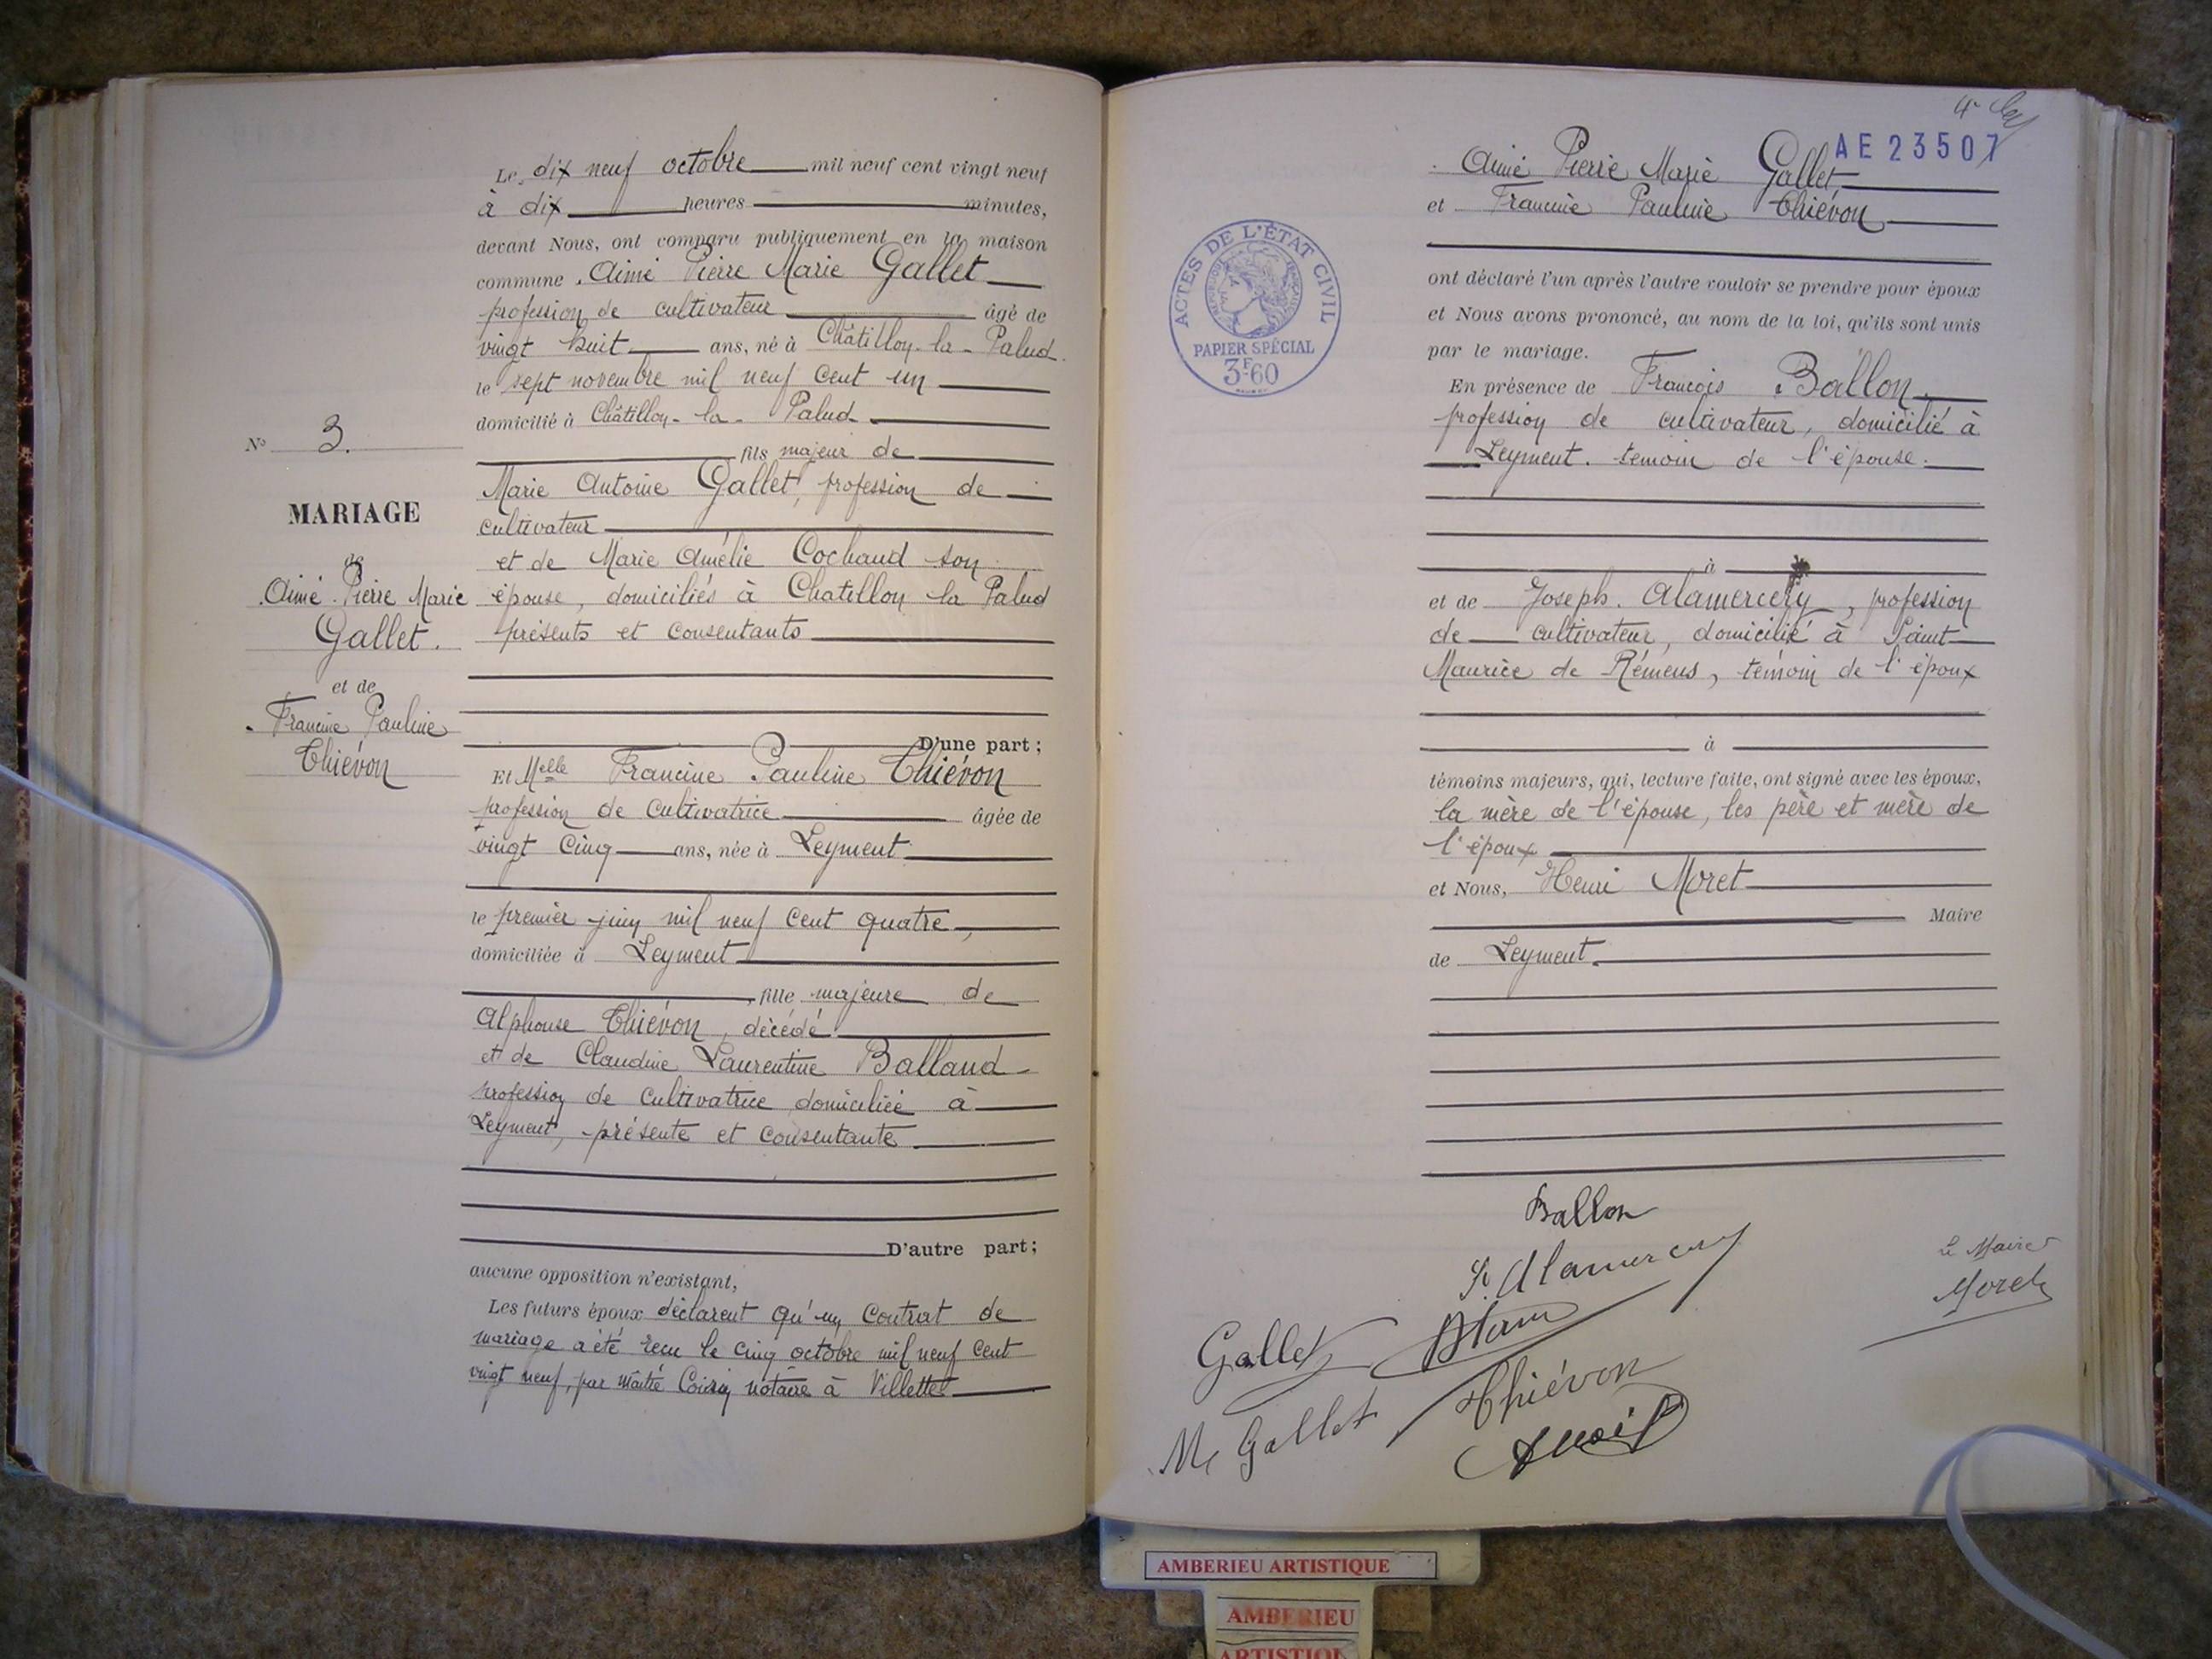 Le dix neuf octobre mil neuf cent vingt neuf
à dix heures minutes,
devant Nous, ont comparu publiquement en la maison
commune Aimé Pierre Marie Gallet
profession de cultivateur âgé de
vingt huit ans, né à Châtillon-la-Palud
le sept novembre mil neuf cent un
domicilié à Châtillon-la-Palud
fils majeur de
Marie Antoine Gallet, profession de
cultivateur
et de Marie Amélie Cochaud son
épouse, domiciliés à Chatillon la Palud
présents et consentants
D'une part;
Et Melle Francine Pauline Thiévon
profession de cultivatrice âgée de
vingt cinq ans, née à Leyment
le premier juin mil neuf cent quatre,
domiciliée à Leyment
, fille majeure de
Alphonse Thiévon, décédé
et de Claudine Laurentine Balland
profession de cultivatrice domiciliée à
Leyment, présente et consentante
D'autre part;
aucune opposition n'existant,
Les futurs époux déclarent qu'un contrat de
mariage a été reçu le cinq octobre mil neuf cent
vingt neuf, par maître notaire à Villette
No 3.
MARIAGE
de
Aimé Pierre Marie
Gallet.
et de
Francine Pauline
Thiévon
AE 23507
Aimé Pierre Marie Gallet
et Francine Pauline Thiévon
ont déclaré l'un après l'autre vouloir se prendre pour époux
et Nous avons prononcé, au nom de la loi, qu'ils sont unis
par le mariage.
En présence de François Ballon
profession de cultivateur, domicilié à
Leyment. témoin de l'épouse.
à
et de Joseph Alamercery, profession
de cultivateur, domicilié à Saint
Maurice de Rémens, témoin de l'époux
à
témoins majeurs, qui, lecture faite, ont signé avec les époux,
la mère de l'épouse, les père et mère de
l'époux
et Nous, Henri Moret
Maire
de Leyment
ACTES DE L'ÉTAT CIVIL
RÉPUBLIQUE FRANÇAISE
PAPIER SPÉCIAL
3F60
Ballon
Alamercery
Le Maire
Moret
Gallet
Thiévon
M Gallet
AMBERIEU ARTISTIQUE
AMBERIEU
ARTISTIQU